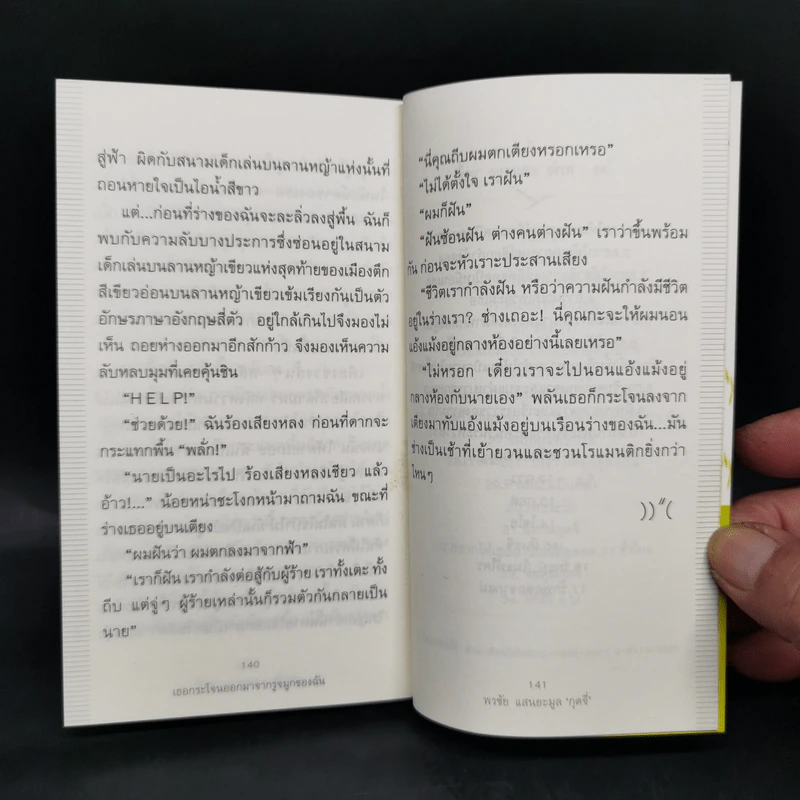 สู่ฟ้า ผิดกับสนามเด็กเล่นบนลานหญ้าแห่งนั้นที่
ถอนหายใจเป็นไอน้ำสีขาว
แต่...ก่อนที่ร่างของฉันจะละลิ่วลงสู่พื้น ฉันก็
พบกับความลับบางประการซึ่งซ่อนอยู่ในสนาม
เด็กเล่นบนลานหญ้าเขียวแห่งสุดท้ายของเมืองตึก
สีเขียวอ่อนบนลานหญ้าเขียวเข้มเรียงกันเป็นตัว
อักษรภาษาอังกฤษสี่ตัว อยู่ใกล้เกินไปจึงมองไม่
เห็น ถอยห่างออกมาอีกสักก้าว จึงมองเห็นความ
ลับหลบมุมที่เคยคุ้นชิน
“HELP!”
“ช่วยด้วย!” ฉันร้องเสียงหลง ก่อนที่ดากจะ
กระแทกพื้น “พลั่ก!”
“นายเป็นอะไรไป ร้องเสียงหลงเชียว แล้ว
อ้าว!...” น้อยหน่าชะโงกหน้ามาถามฉัน ขณะที่
ร่างเธออยู่บนเตียง
“ผมฝันว่า ผมตกลงมาจากฟ้า”
“เราก็ฝัน เรากำลังต่อสู้กับผู้ร้าย เราทั้งเตะ ทั้ง
ถีบ แต่จู่ๆ ผู้ร้ายเหล่านั้นก็รวมตัวกันกลายเป็น
นาย”
140
เธอกระโจนออกมาจากรูจมูกของฉัน
“นี่คุณถีบผมตกเตียงหรอกเหรอ”
“ไม่ได้ตั้งใจ เราฝัน”
“ผมก็ฝัน”
“ฝันซ้อนฝัน ต่างคนต่างฝัน” เราว่าขึ้นพร้อม
กัน ก่อนจะหัวเราะประสานเสียง
“ชีวิตเรากำลังฝัน หรือว่าความฝันกำลังมีชีวิต
อยู่ในร่างเรา? ช่างเถอะ! นี่คุณกะจะให้ผมนอน
แอ้งแม้งอยู่กลางห้องอย่างนี้เลยเหรอ”
“ไม่หรอก เดี๋ยวเราจะไปนอนแอ้งแม้งอยู่
กลางห้องกับนายเอง” พลันเธอก็กระโจนลงจาก
เตียงมาทับแอ้งแม้งอยู่บนเรือนร่างของฉัน...มัน
ช่างเป็นเช้าที่เย้ายวนและชวนโรแมนติกยิ่งกว่า
ไหนๆ
141
พวชัย แสนยะมูล ‘กุดจี่’